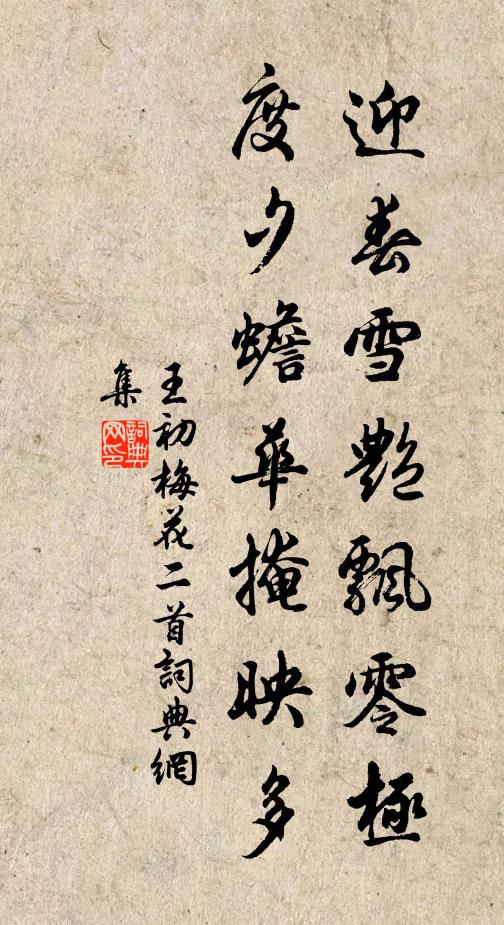 迎春雪艷飄零極
度夕蟾華掩映多
王初梅花二首詞典網
集
詞典
网印